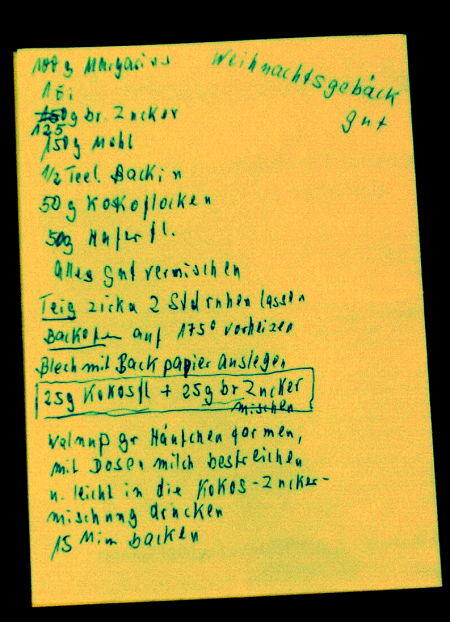 Weihnachtsgebäck
gut
100g Margarine
1 Ei
125g br. Zucker
150g Mehl
1/2 Teel. Backin
50g Kokoflocken
50g Haferfl.
alles gut vermischen
Teig zirka 2 Std ruhen lassen
Backofen auf 175° vorheizen
Blech mit Backpapier auslegen
25g Kokosfl + 25g br Zucker
mischen
Walnuß gr Häufchen formen,
mit Dosenmilch bestreichen
u. leicht in die Kokos-Zucker-
mischung drücken
15 Min backen